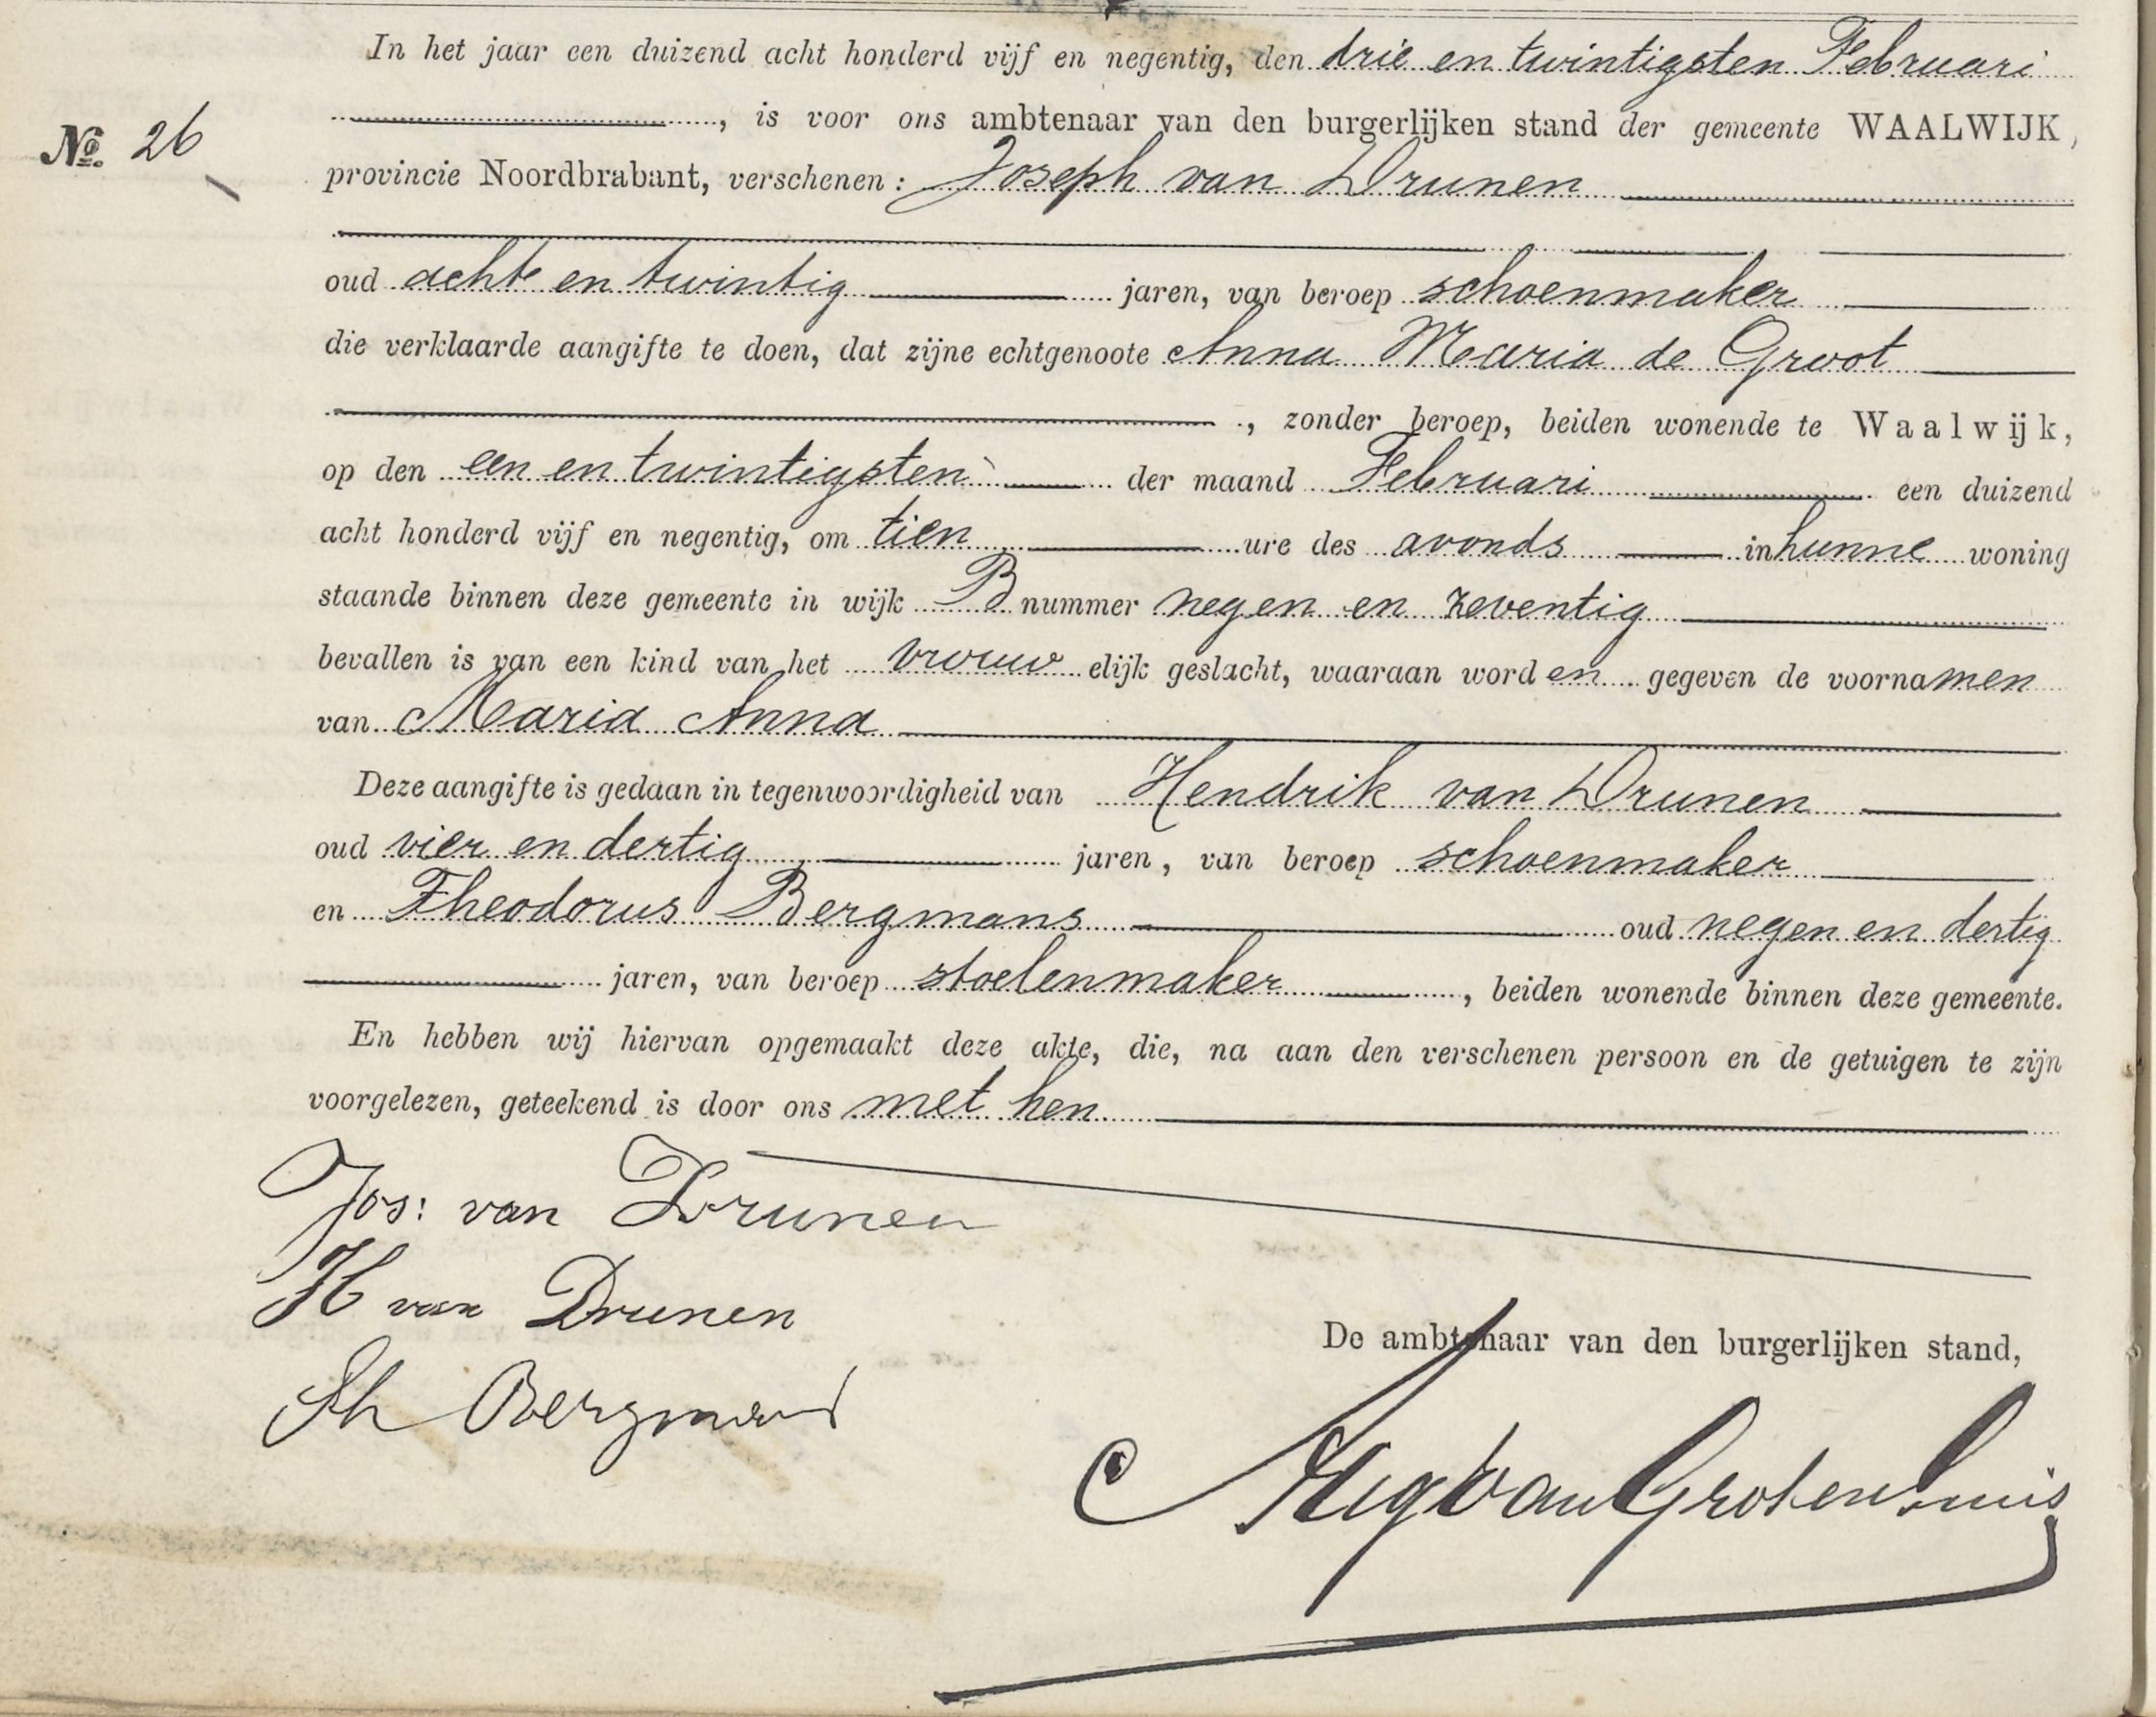 In het jaar een duizend acht honderd vijf en negentig, den drie en twintigsten Februari
, is voor ons ambtenaar van den burgerlijken stand der gemeente WAALWIJK,
No. 26
provincie Noordbrabant, verschenen: Joseph van Drunen
oud acht en twintig jaren, van beroep schoenmaker
die verklaarde aangifte te doen, dat zijne echtgenoote Anna Maria de Groot
, zonder beroep, beiden wonende te Waalwijk,
op den een en twintigsten der maand Februari een duizend
acht honderd vijf en negentig, om tien ure des avonds in hunne woning
staande binnen deze gemeente in wijk B nummer negen en zeventig
bevallen is van een kind van het vrouwelijk geslacht, waaraan worden gegeven de voornamen
van Maria Anna
Deze aangifte is gedaan in tegenwoordigheid van Hendrik van Drunen
oud vier en dertig jaren, van beroep schoenmaker
en Theodorus Bergmans oud negen en dertig
jaren, van beroep stoelenmaker, beiden wonende binnen deze gemeente.
En hebben wij hiervan opgemaakt deze akte, die, na aan den verschenen persoon en de getuigen te zijn
voorgelezen, geteekend is door ons met hen
Jos: van Drunen
H van Drunen
Th Bergmans
De ambtenaar van den burgerlijken stand,
van Grotenhuis